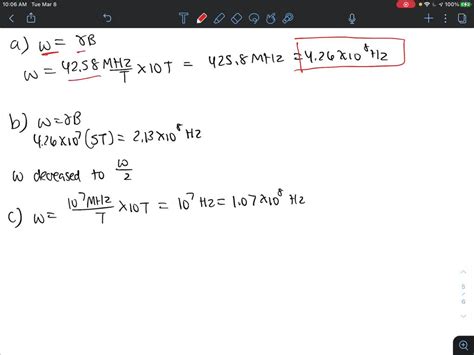 10:06 AM Tue Mar 8
100%
a) ω = γB
ω = 42.58 MHz/T × 10T = 425.8 MHz = 4.26×10⁸ Hz
b) ω=γB
4.26×10⁷ (5T) = 2.13×10⁸ Hz
ω decreased to ω/2
c) ω = 10⁷ MHz/T × 10T = 10⁷ Hz = 1.07×10⁸ Hz
5
6